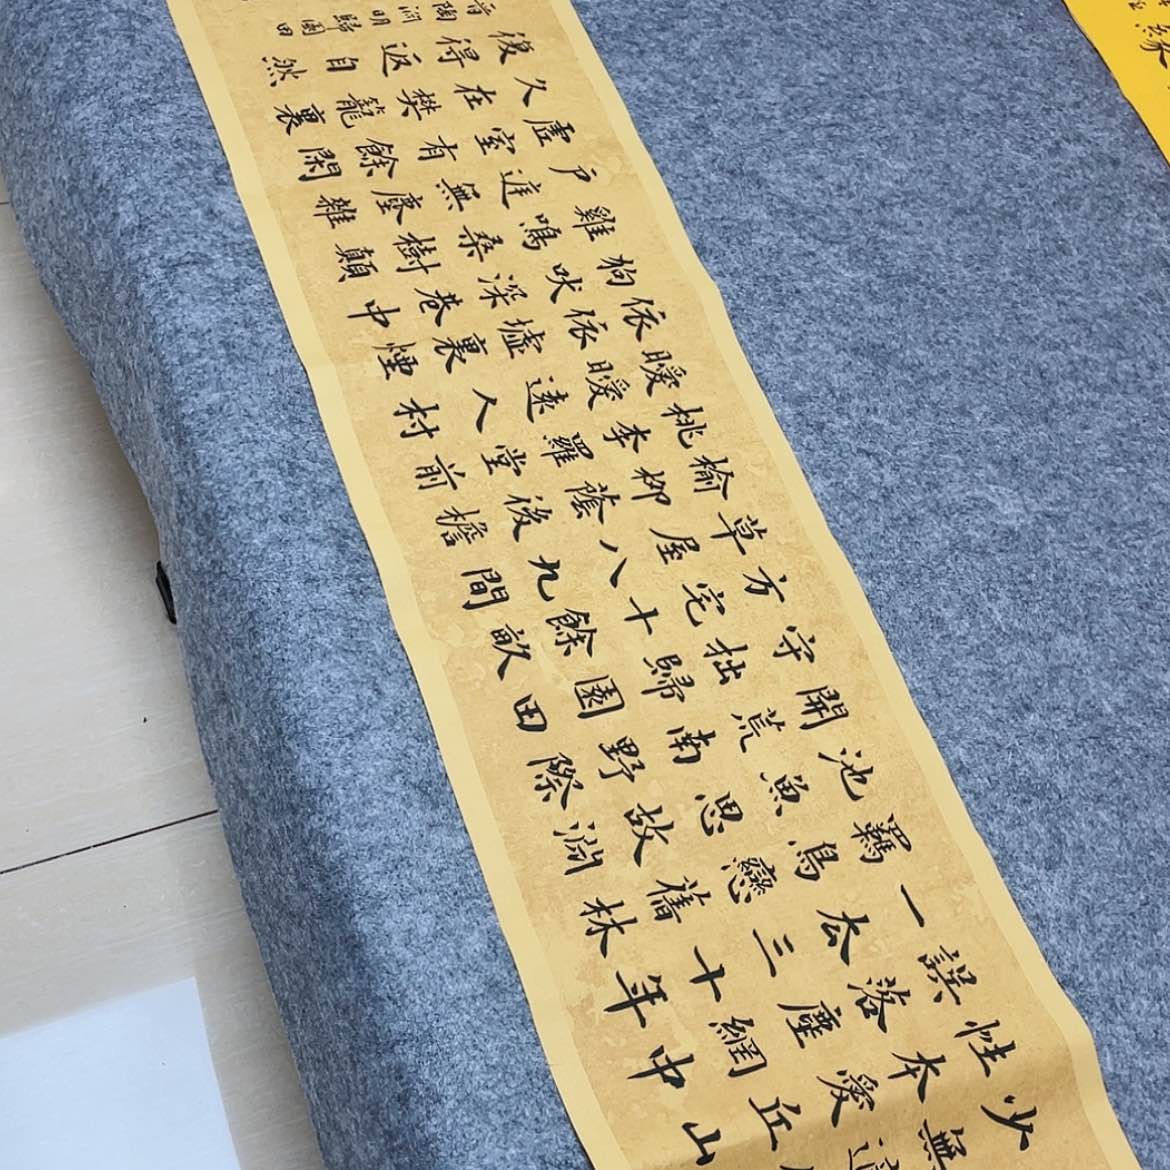 少無適
性本愛丘山
誤落塵網中
一去三十年
羈鳥戀舊林
池魚思故淵
開荒南野際
守拙歸園田
方宅十餘畝
草屋八九間
榆柳蔭後檐
桃李羅堂前
曖曖遠人村
依依墟裏煙
狗吠深巷中
雞鳴桑樹顛
戶庭無塵雜
虛室有餘閑
久在樊籠裏
後得返自然
晉陶淵明歸園田
緣